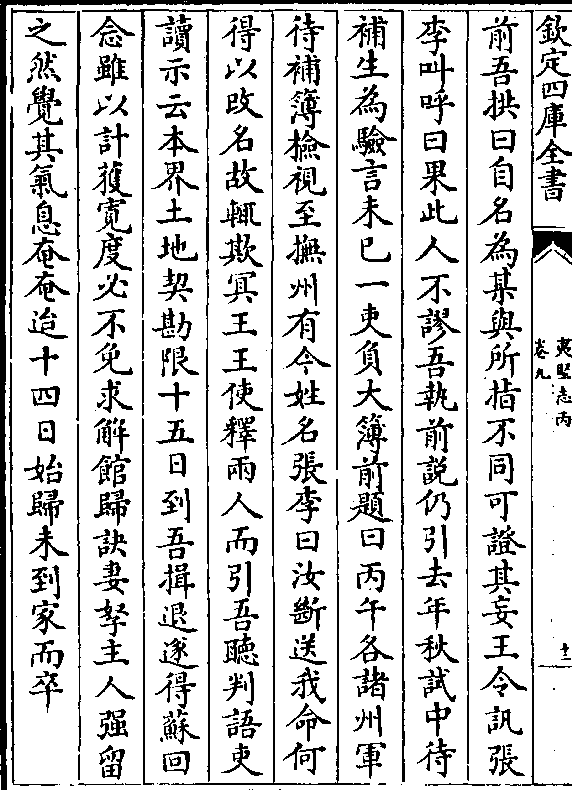 欽定四庫全書
夷堅志丙
卷九
十二
前吾拱曰自名為某與所指不同可證其妄王令訊張
李叫呼曰果此人不謬吾執前説仍引去年秋試中待
補生為驗言未已一吏負大簿前題曰丙午各諸州軍
待補簿檢視至撫州有今姓名張李曰汝斷送我命何
得以改名故輒欺冥王王使釋兩人而引吾聽判語吏
讀示云本界土地契勘限十五日到吾揖退遂得蘇回
念雖以計獲寛度必不免求解館歸訣妻孥主人强留
之然覺其氣息奄奄迨十四日始歸未到家而卒